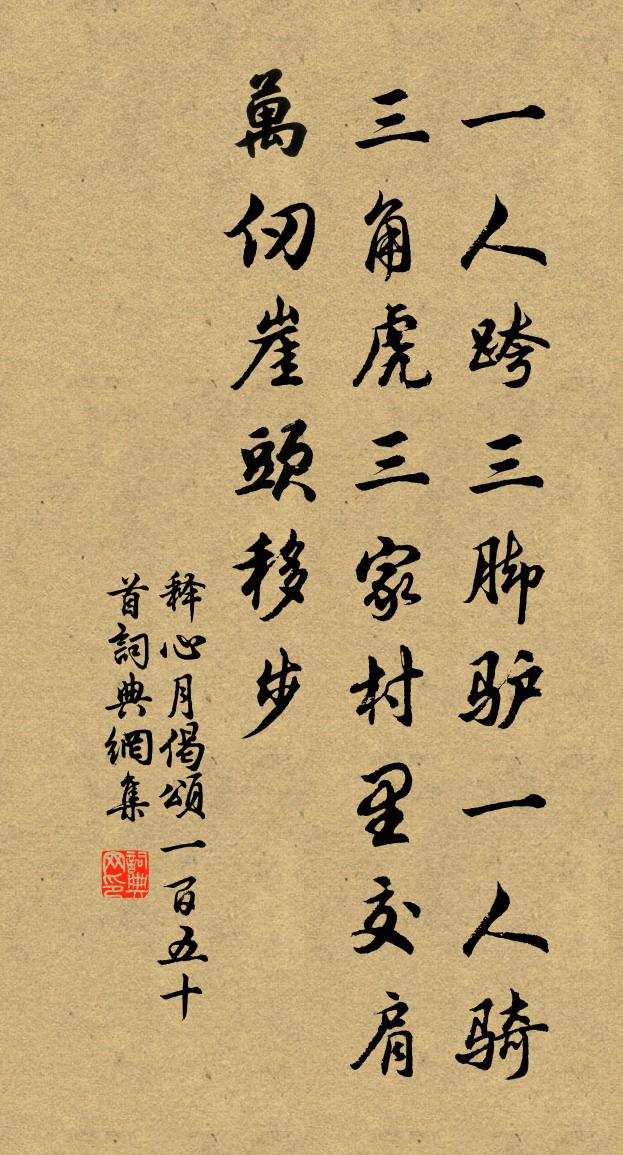 一人跨三脚驴一人骑
三角虎三家村里交肩
萬仞崖頭移步
释心月偈頌一百五十
首詞典網集
詞典
网印